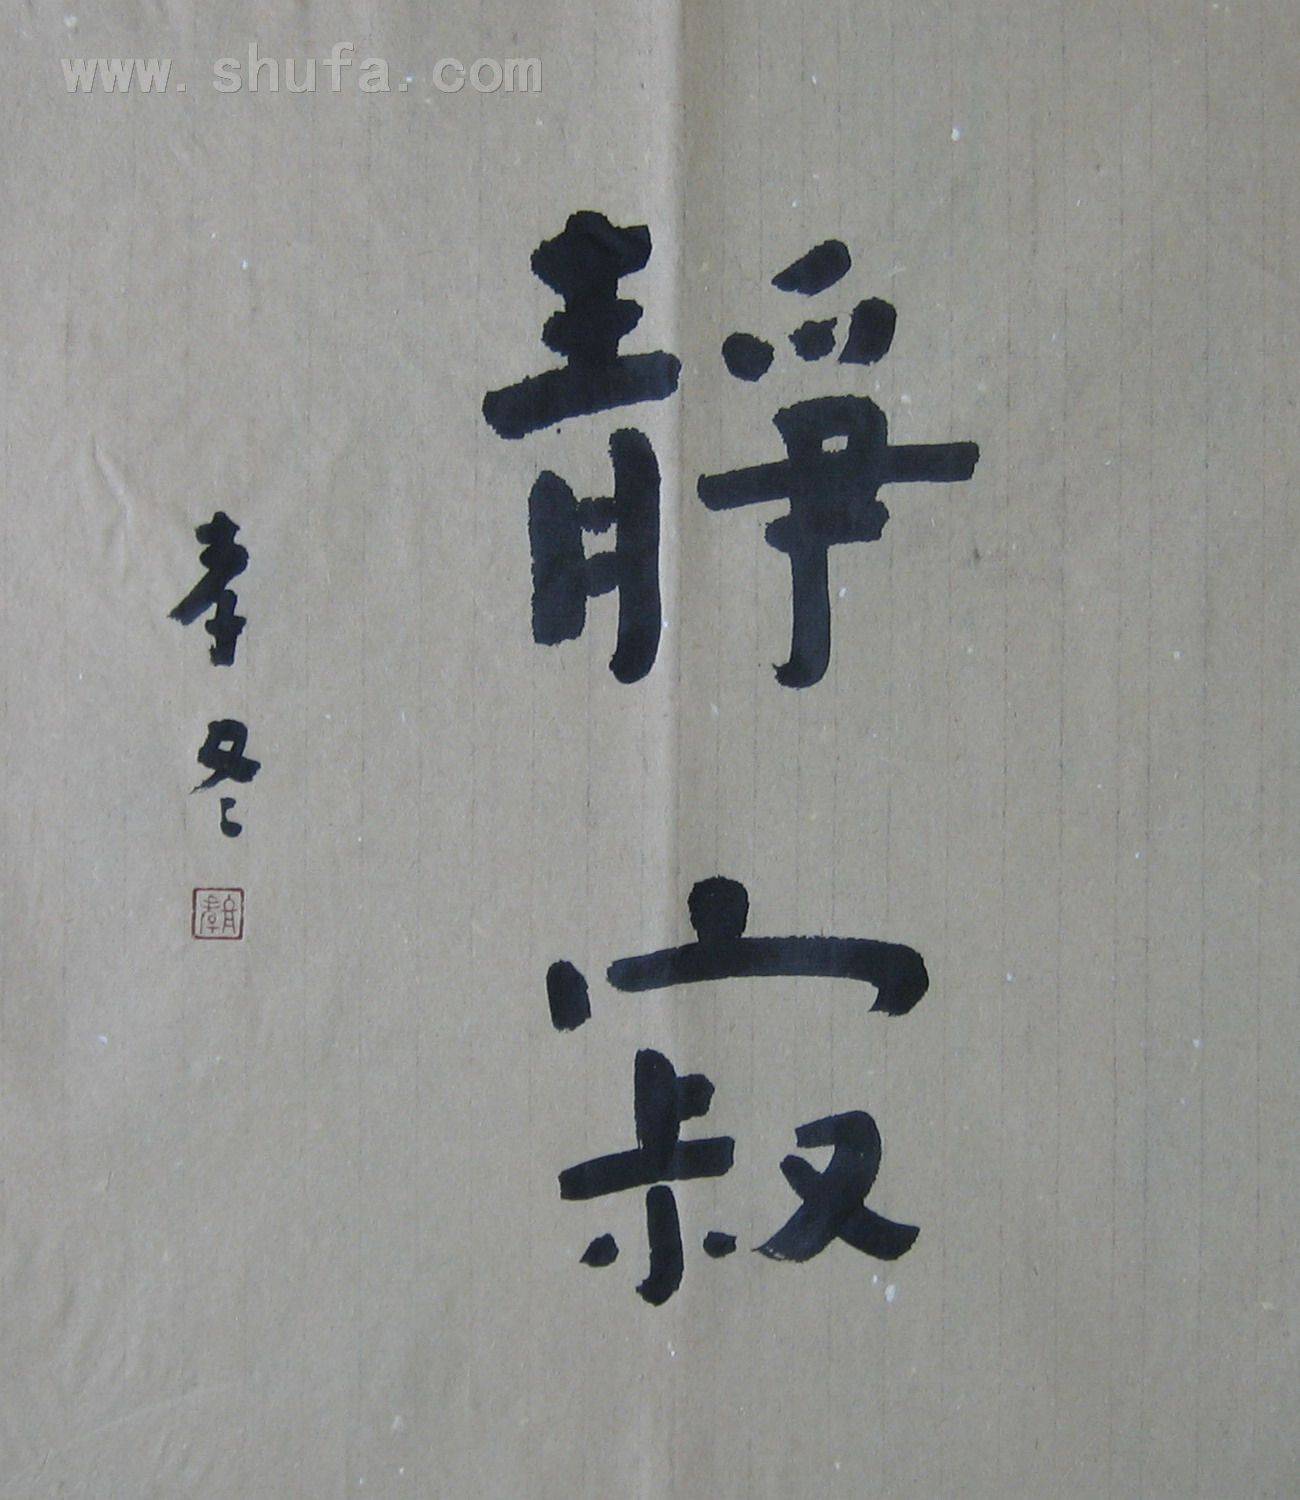 www.shufa.com
靜寂
孝冬